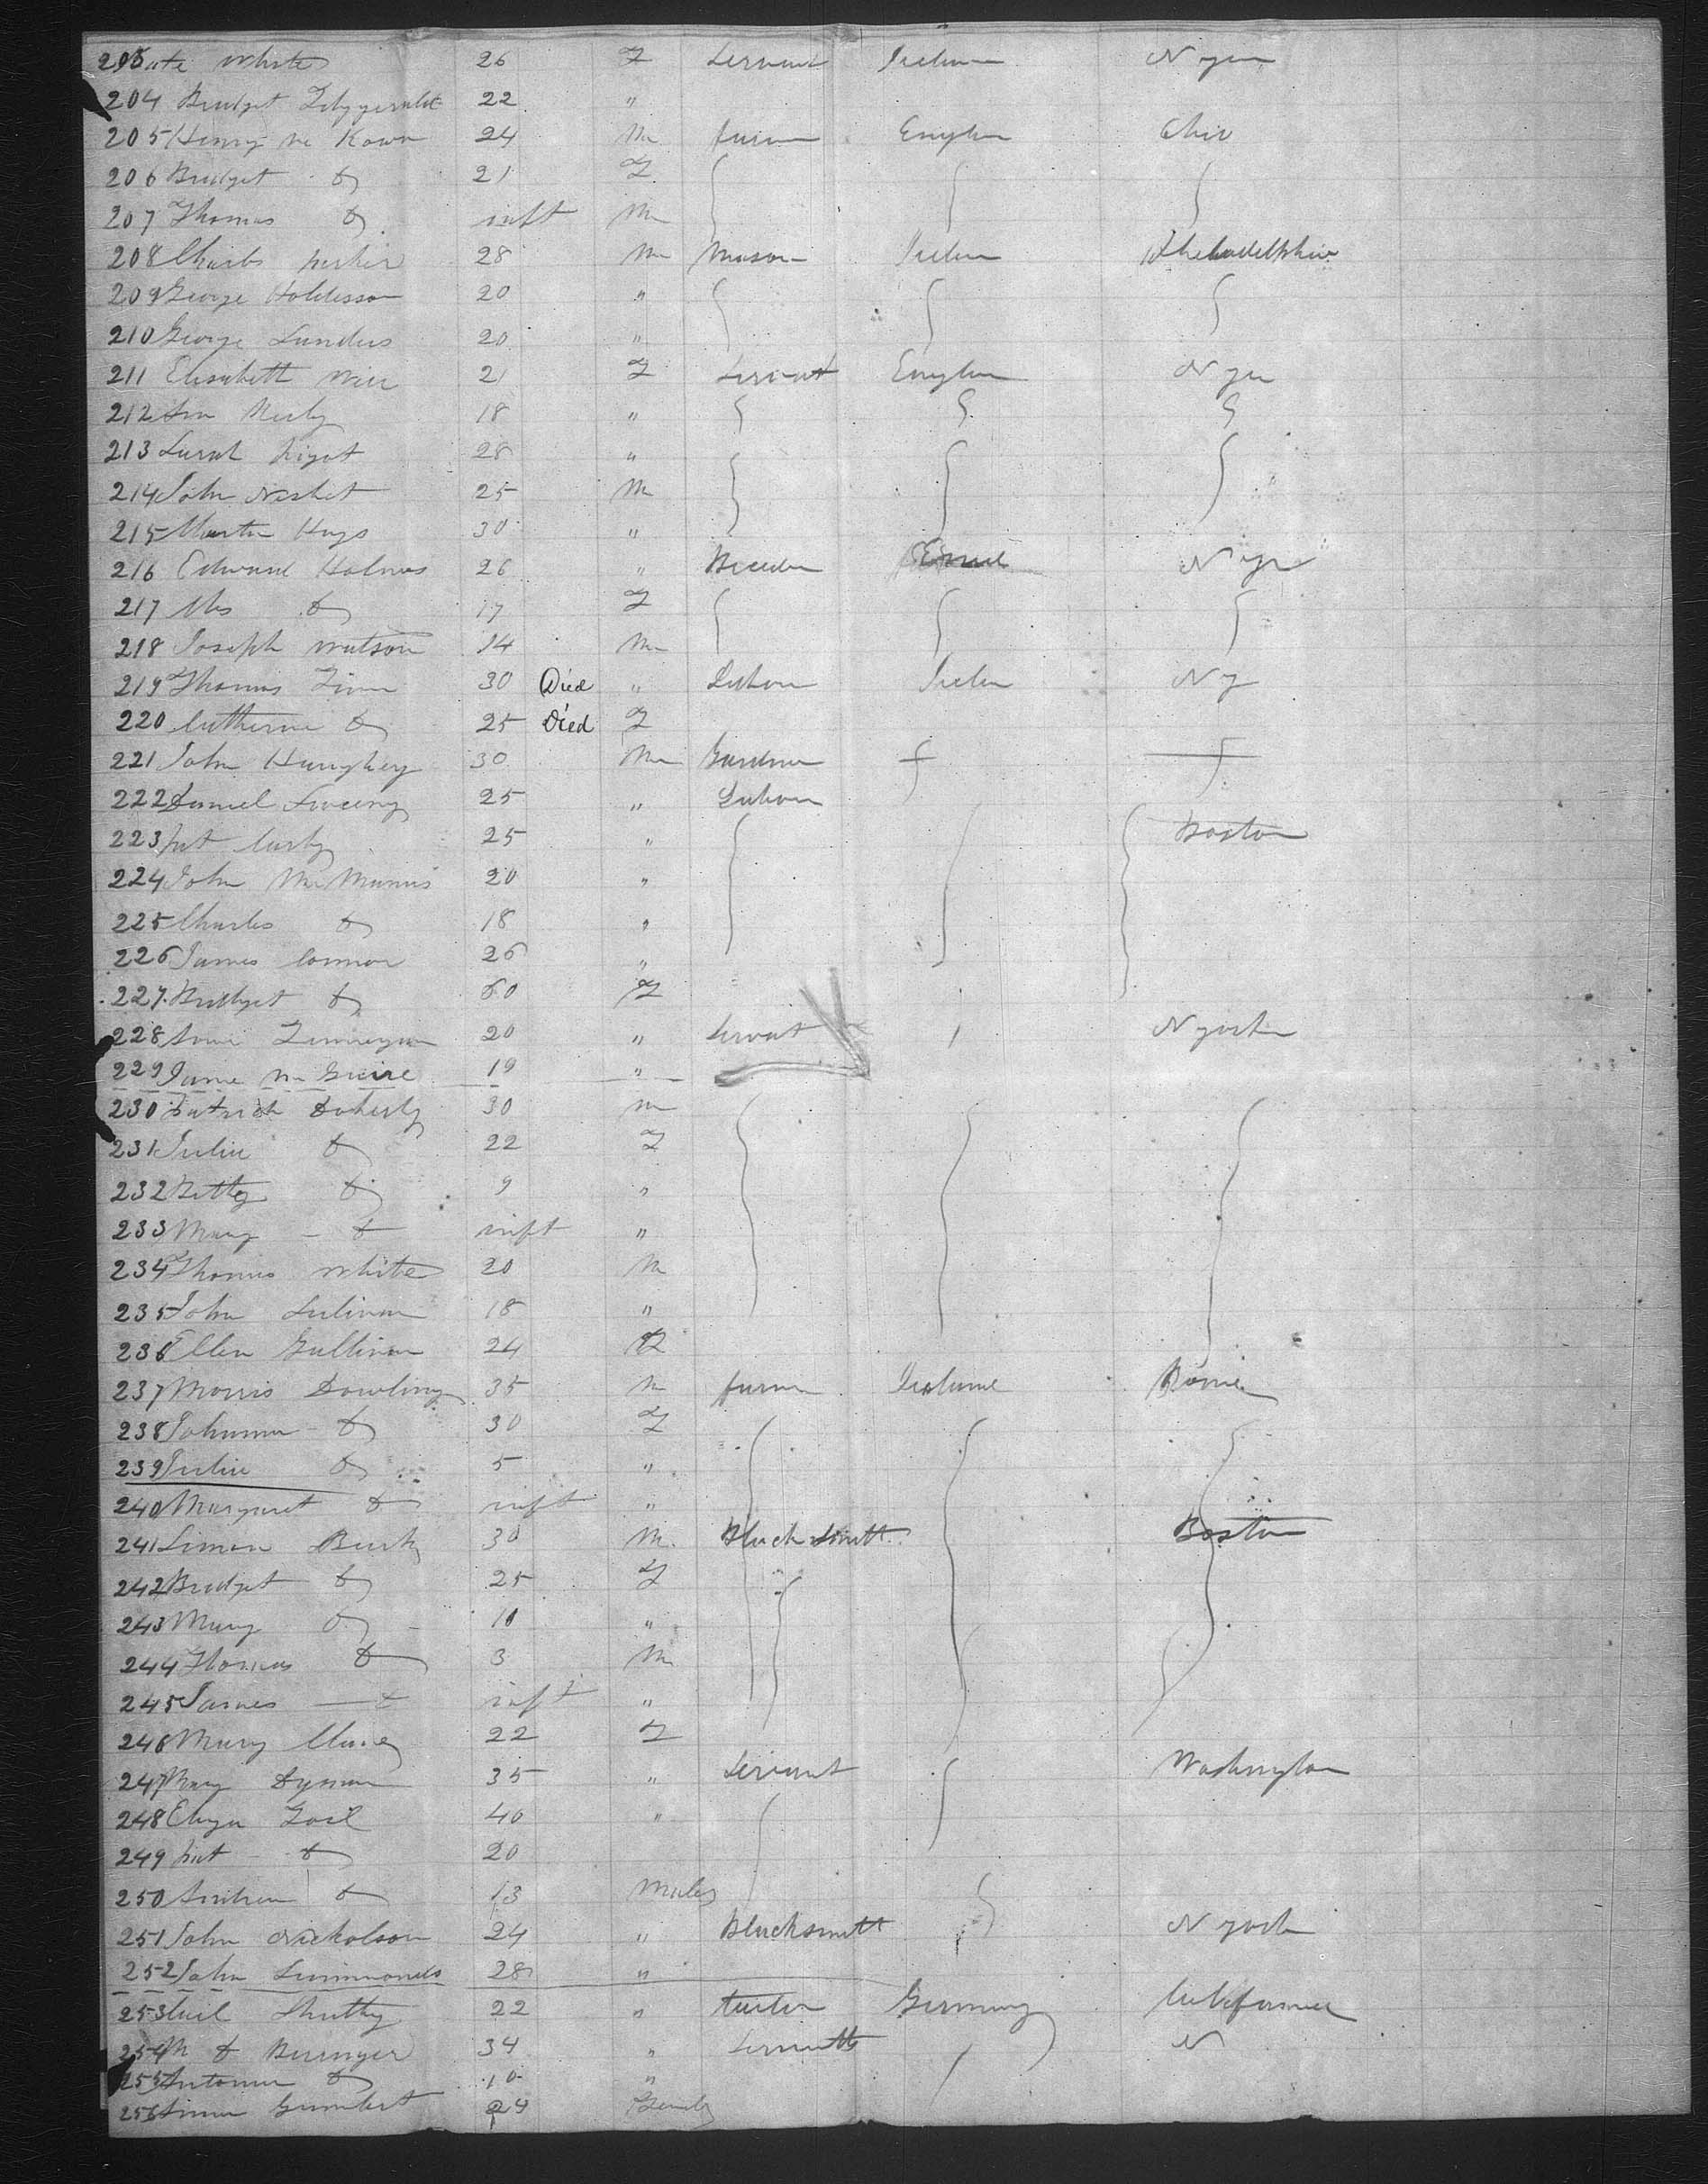 203 Kate White 26 F Servant Irelan N Yor
204 Bridget Fitzgerald 22 "
205 Henry Mc Kown 24 M farm Englan Ohio
206 Bridget Do 21 F
207 Thomas Do inft M
208 Charls parker 28 M Mason Irelan Pheladelphia
209 George 20 "
210 George Landers 20 "
211 Elisabett 21 F Servant Englan N Yor
212 Ann 18 "
213 Sarah 28 "
214 John Nesbet 25 M
215 Martin Hays 30 "
216 Edward Holmes 26 " N Yor
217 Mrs Do 17 F
218 Joseph Watson 14 M
219 Thomas Finn 30 Died " Labour Irelan N Y
220 Catherine Do 25 Died F
221 John Haughey 30 M Gardner
222 Daniel Sweeny 25 " Labour
223 pat 25 " Boston
224 John Mc Manus 20 "
225 Charles Do 18 "
226 James Connor 26 "
227 Bridget Do 60 F
228 Finnegan 20 " Servant N York
229 Jane Mc Guire 19 "
230 Patrick Doherty 30 M
231 Julia Do 22 F
232 Betty Do 9 "
233 Mary - Do inft "
234 Thomas White 20 M
235 John Sulivan 18 "
236 Ellen Gullivan 24 F
237 Morris Dowling 35 M farm Irelane
238 Johanna Do 30 F
239 Julia Do 5 "
240 Margaret Do inft "
241 Simon Burk 30 M Black Smitt Boston
242 Bridget Do 25 F
243 Mary Do 11 "
244 Thomas Do 3 M
245 James — Do inft "
246 Mary 22 F
247 Mary Dynan 35 " Servant Washington
248 40 "
249 pat Do 20
250 Andrew Do 13 Males
251 John Nickolson 24 " Blacksmitt N York
252 John Simmonds 28 "
253 22 " Germany Califurnia
254 M Do Beringer 34 " N
255 Do 10 "
256 24